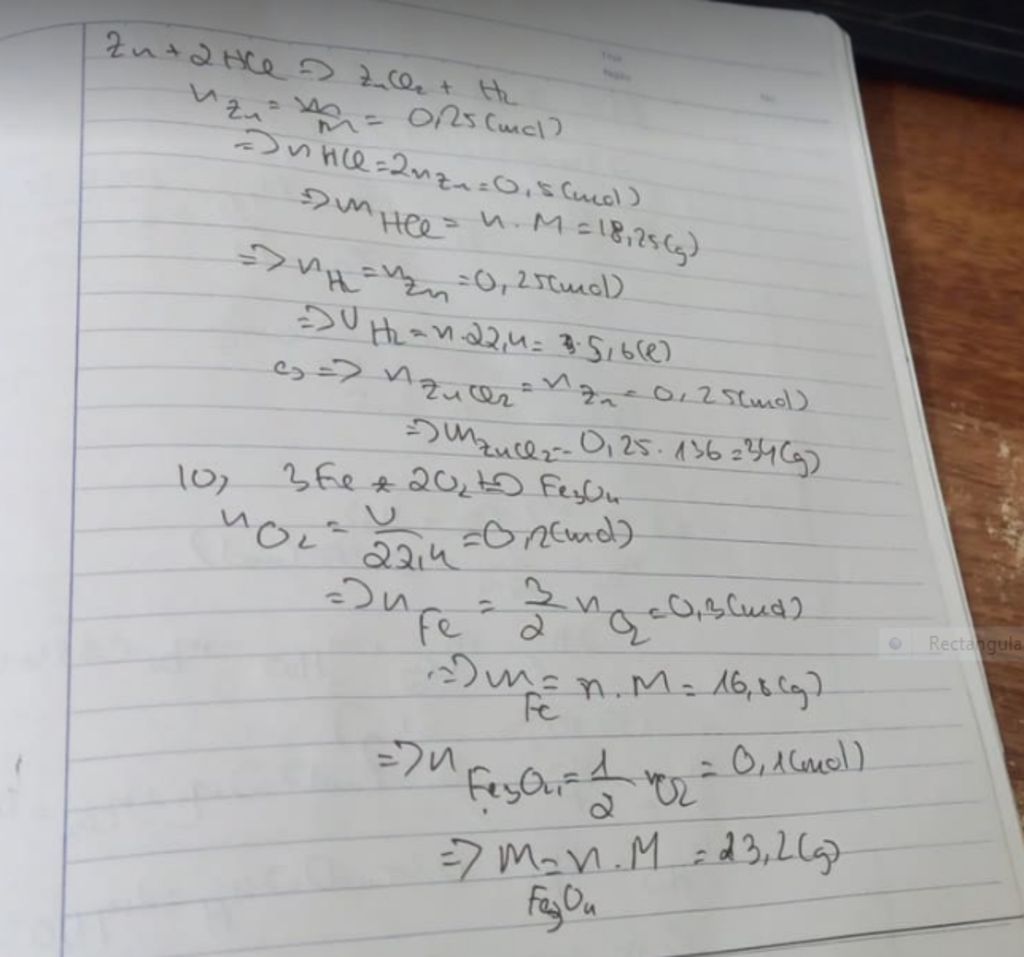 Zn + 2HCl => ZnCl2 + H2
nZn = m/M = 0,25 (mol)
=> nHCl = 2nZn = 0,5 (mol)
=> mHCl = n.M = 18,25 (g)
=> nH2 = nZn = 0,25 (mol)
=> VH2 = n.22,4 = 5,6 (l)
c, => nZnCl2 = nZn = 0,25 (mol)
=> mZnCl2 = 0,25.136 = 34 (g)
10, 3Fe + 2O2 => Fe3O4
nO2 = V/22,4 = 0,2 (mol)
=> nFe = 3/2 nO2 = 0,3 (mol)
Rectangula
=> mFe = n.M = 16,8 (g)
=> nFe3O4 = 1/2 nO2 = 0,1 (mol)
=> mFe3O4 = n.M = 23,2 (g)